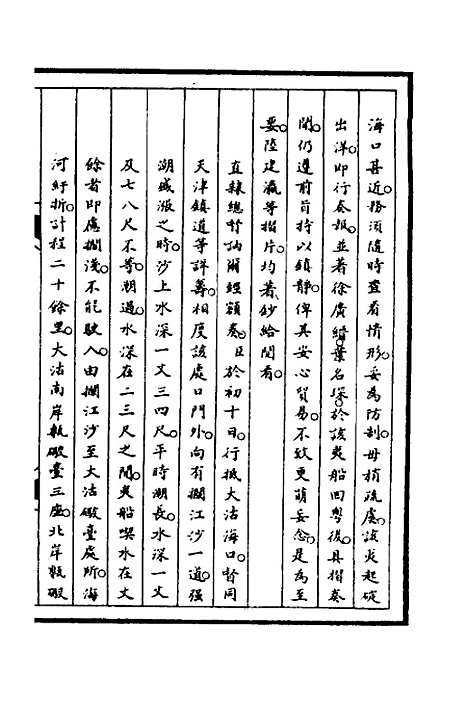 海口甚近。務須隨時查看情形。妥為防剖。毋稍疏虞。該夷起碇
出洋。即行奏報。並著徐廣縉、葉名琛。於該夷船回粵後。具摺奏
聞。仍遵前旨持以鎮靜。俾其安心貿易。不致更萌妄念。是為至
要。陸建瀛等摺片。均著鈔給閱看。
直隸總督訥爾經額奏。臣於初十日。行抵大沽海口。督同
天津鎮道等詳籌。相度該處口門外。向有攔江沙一道。強
潮盛漲之時。沙上水深一丈三四尺。平時潮長。水深一丈
及七八尺不等。潮過。水深在二三尺之間。夷船喫水在丈
餘者即慮攔淺。不能駛入。由攔江沙至大沽礮臺處所。海
河紆折。計程二十餘里。大沽南岸軌礮臺三座。北岸軌礮